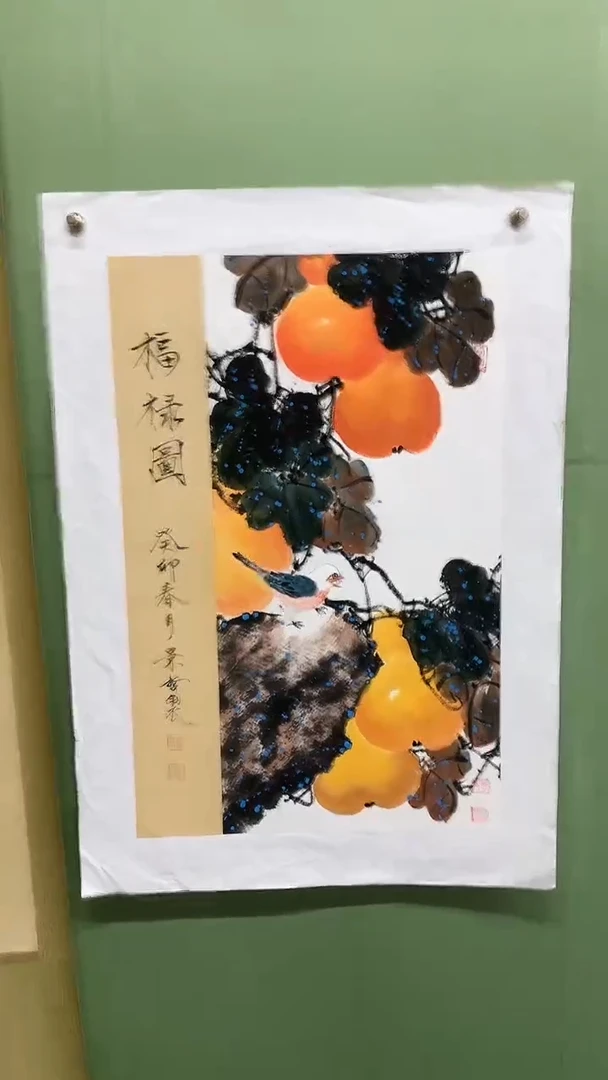 福禄圖
癸卯春月景